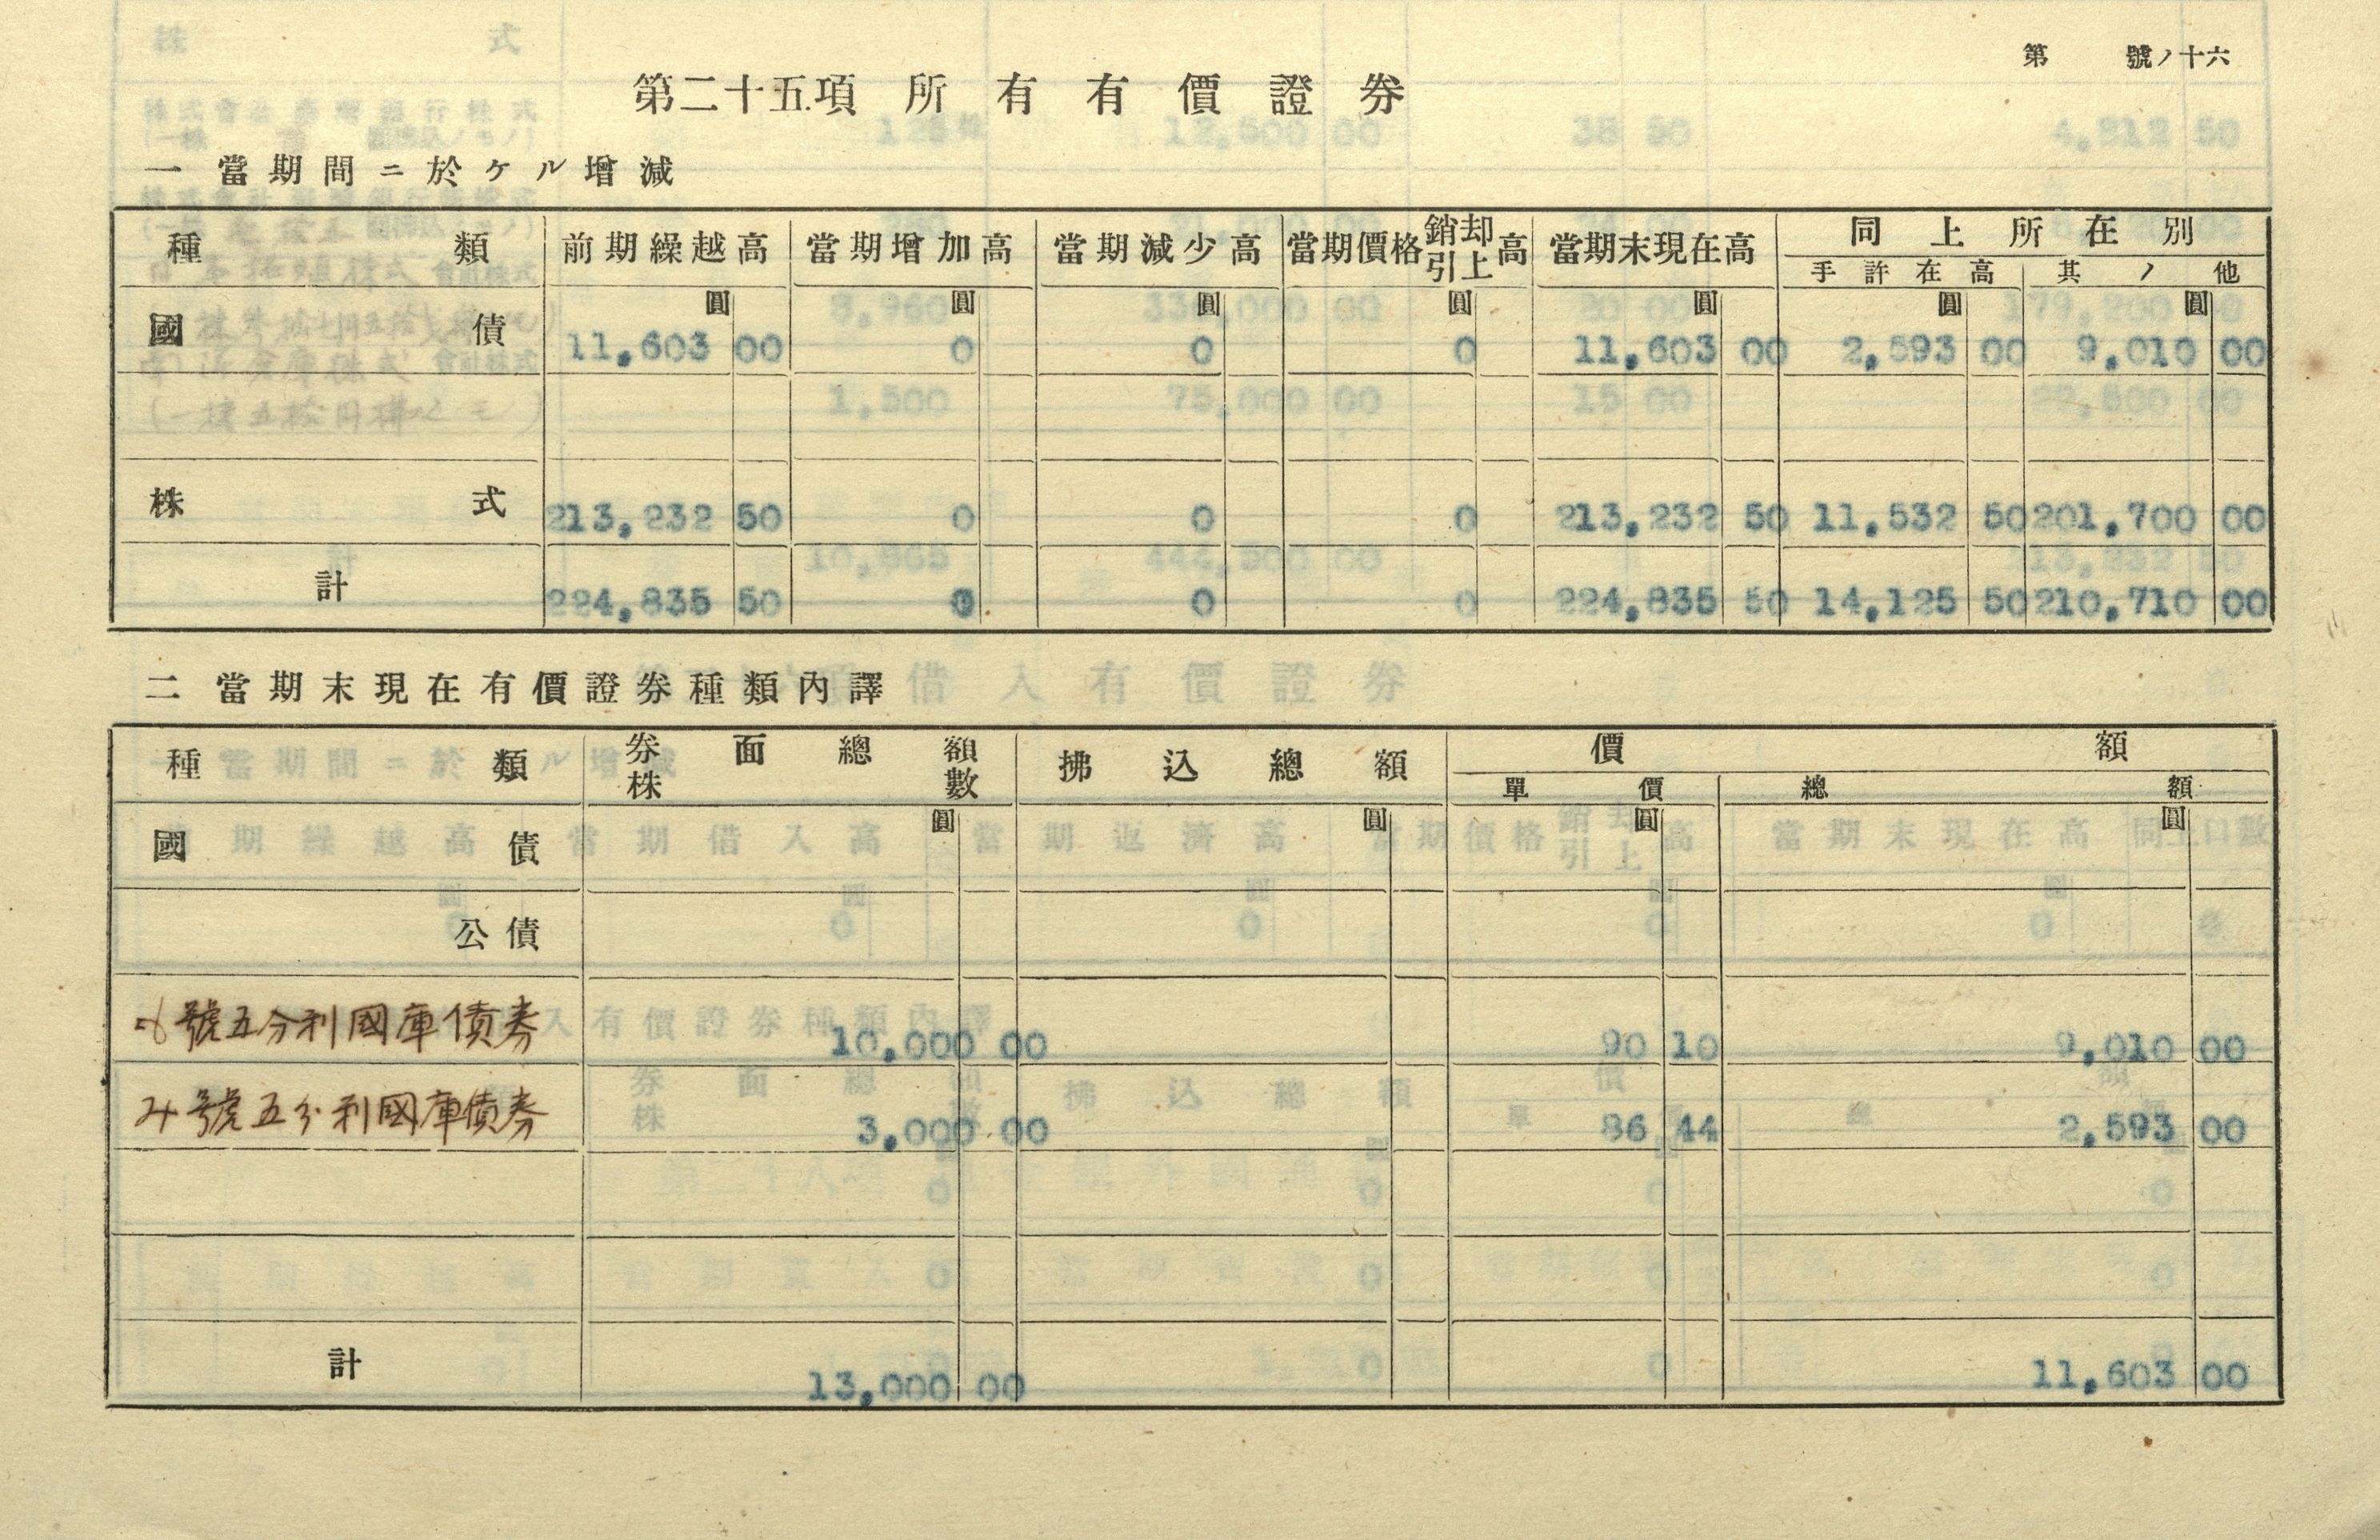 第　號ノ十六
第二十五項　所有有價證券
一　當期間ニ於ケル增減
種類　前期繰越高　當期增加高　當期減少高　當期價格銷却引上高　當期末現在高　同上所在別
手許在高　其ノ他
圓　圓　圓　圓　圓　圓　圓
國債　11,603 00　0　0　0　11,603 00　2,593 00　9,010 00
株式　213,232 50　0　0　0　213,232 50　11,532 50　201,700 00
計　224,835 50　0　0　0　224,835 50　14,125 50　210,710 00
二　當期末現在有價證券種類內譯
種類　券面總額　株數　拂込總額　價額
單價　總額
圓　圓　圓　圓
國債
公債
號五分利國庫債券　10,000 00　90 10　9,010 00
み號五分利國庫債券　3,000 00　86 44　2,593 00
計　13,000 00　11,603 00